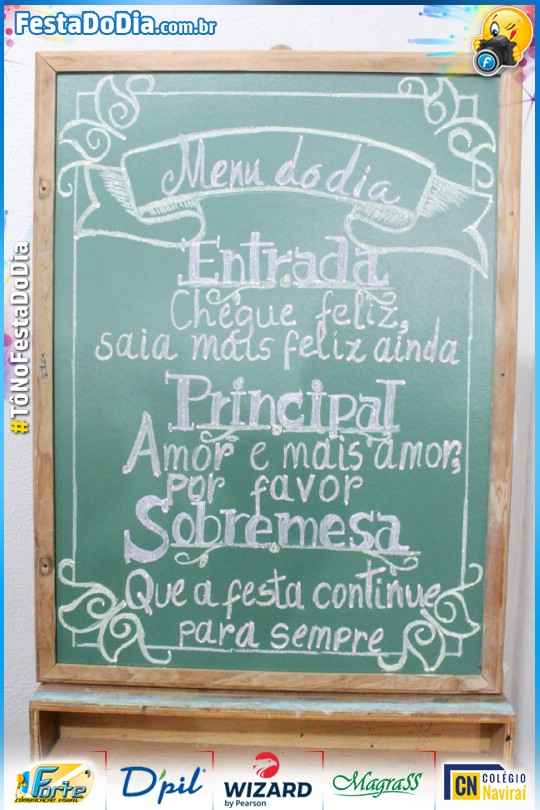 FestaDoDia.com.br
#TôNoFestaDoDia
Menu do dia
Entrada
Chegue feliz,
saia mais feliz ainda
Principal
Amor e mais amor,
por favor
Sobremesa
Que a festa continue
para sempre
Forte
COMUNICAÇÃO VISUAL
D'pil
WIZARD
by Pearson
MagraSS
CN COLÉGIO
Naviraí